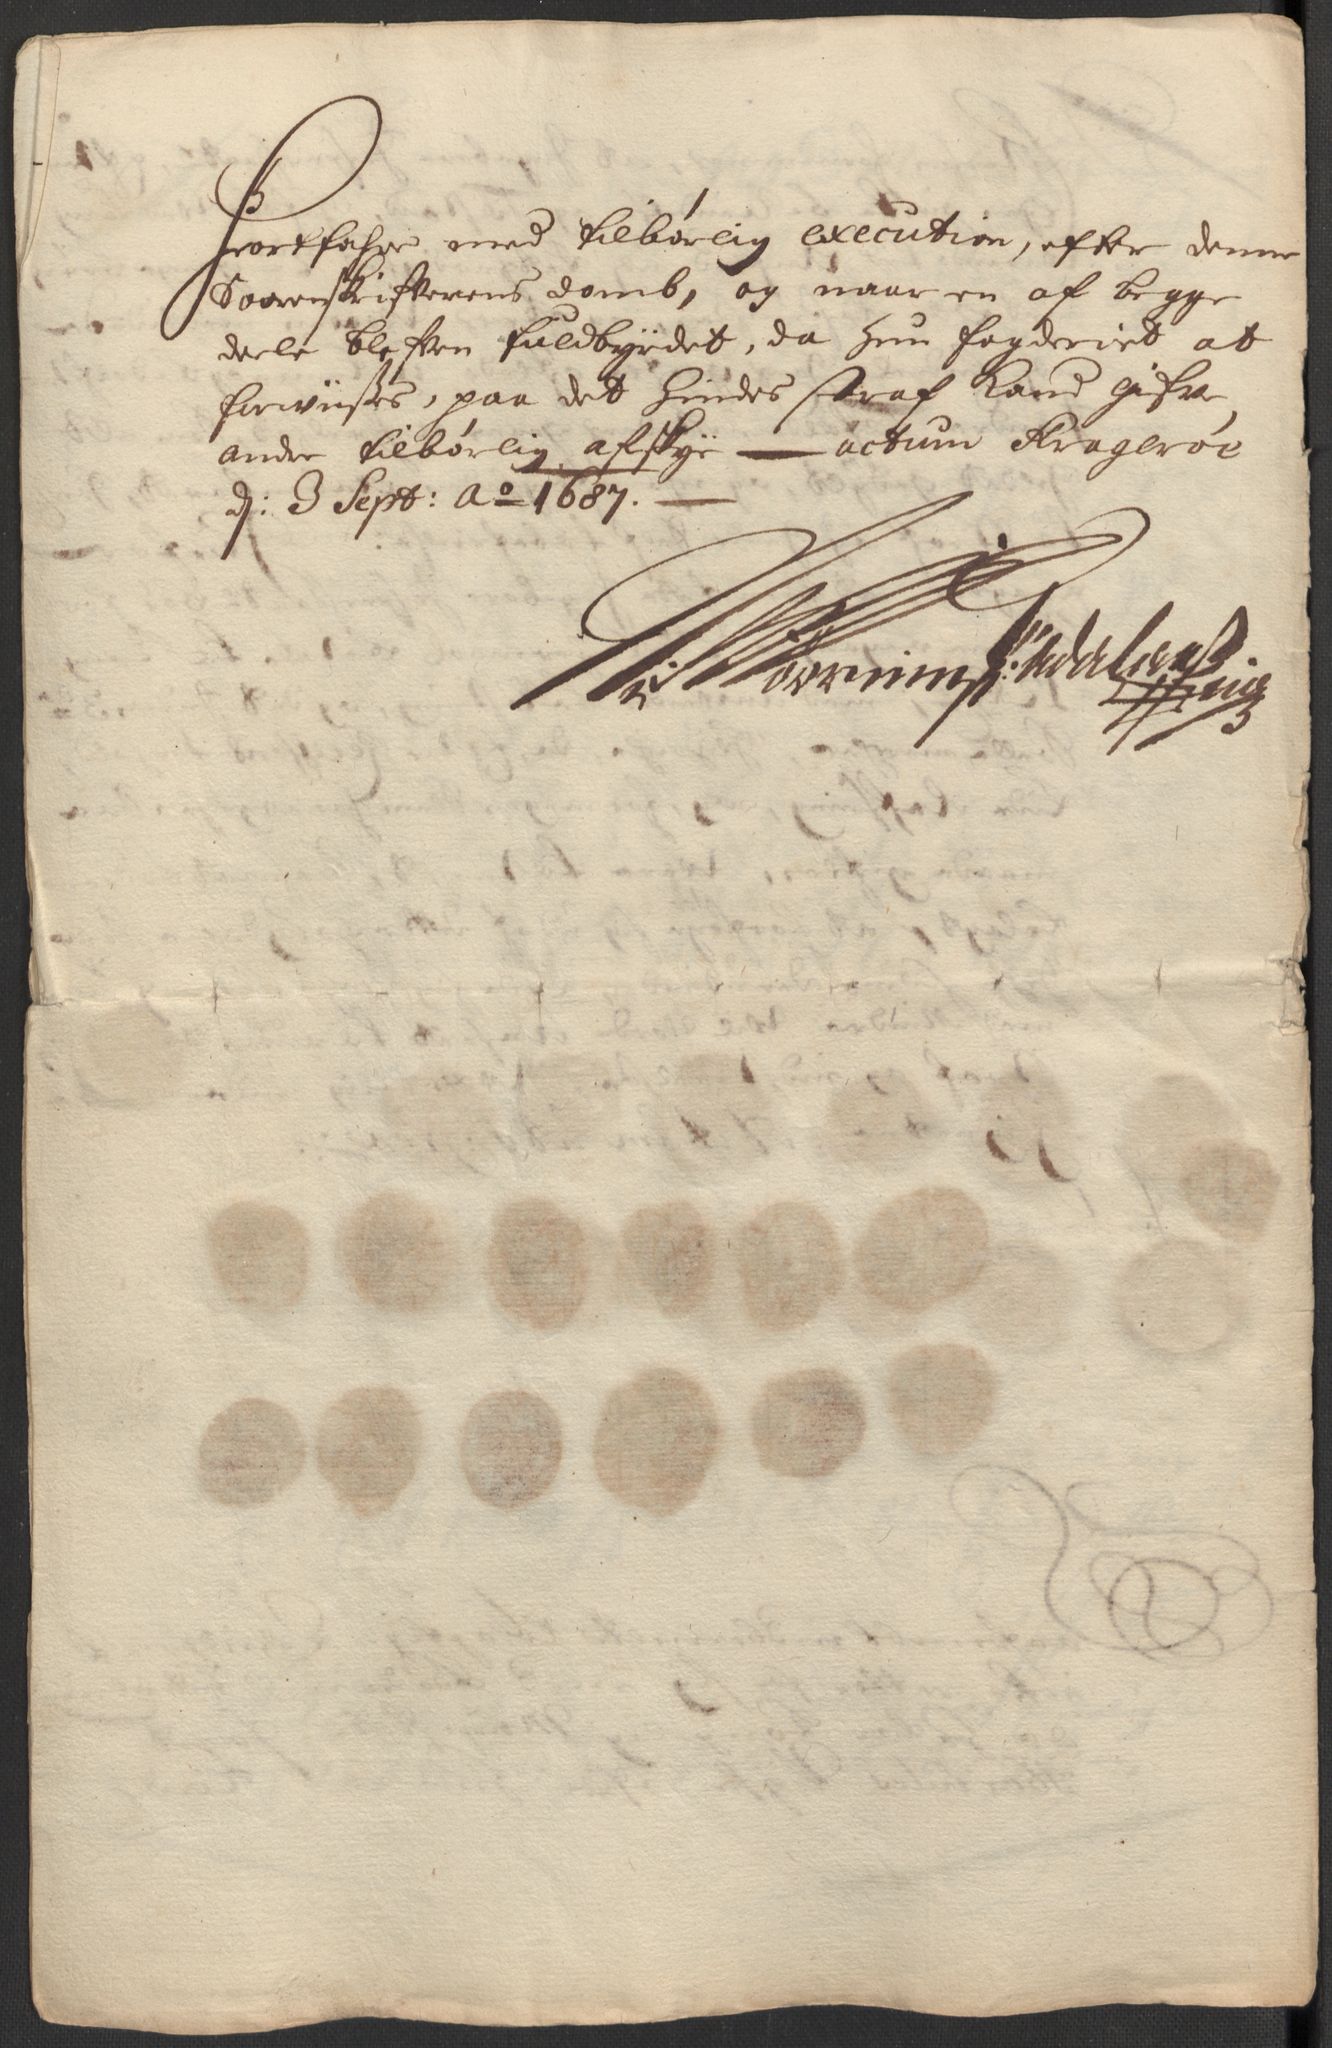 Fortfahre med tilbørlig execution, efter denne
Soorenskrifverens domb, og naar en af begge
deele blefven fuldbyrdet, da hun fogderiet at
forwiißes, paa det hindes straf kand gifve
andre tilbørlig afskye — actum Kragerøe
d: 3 Sept: Ao 1687. —